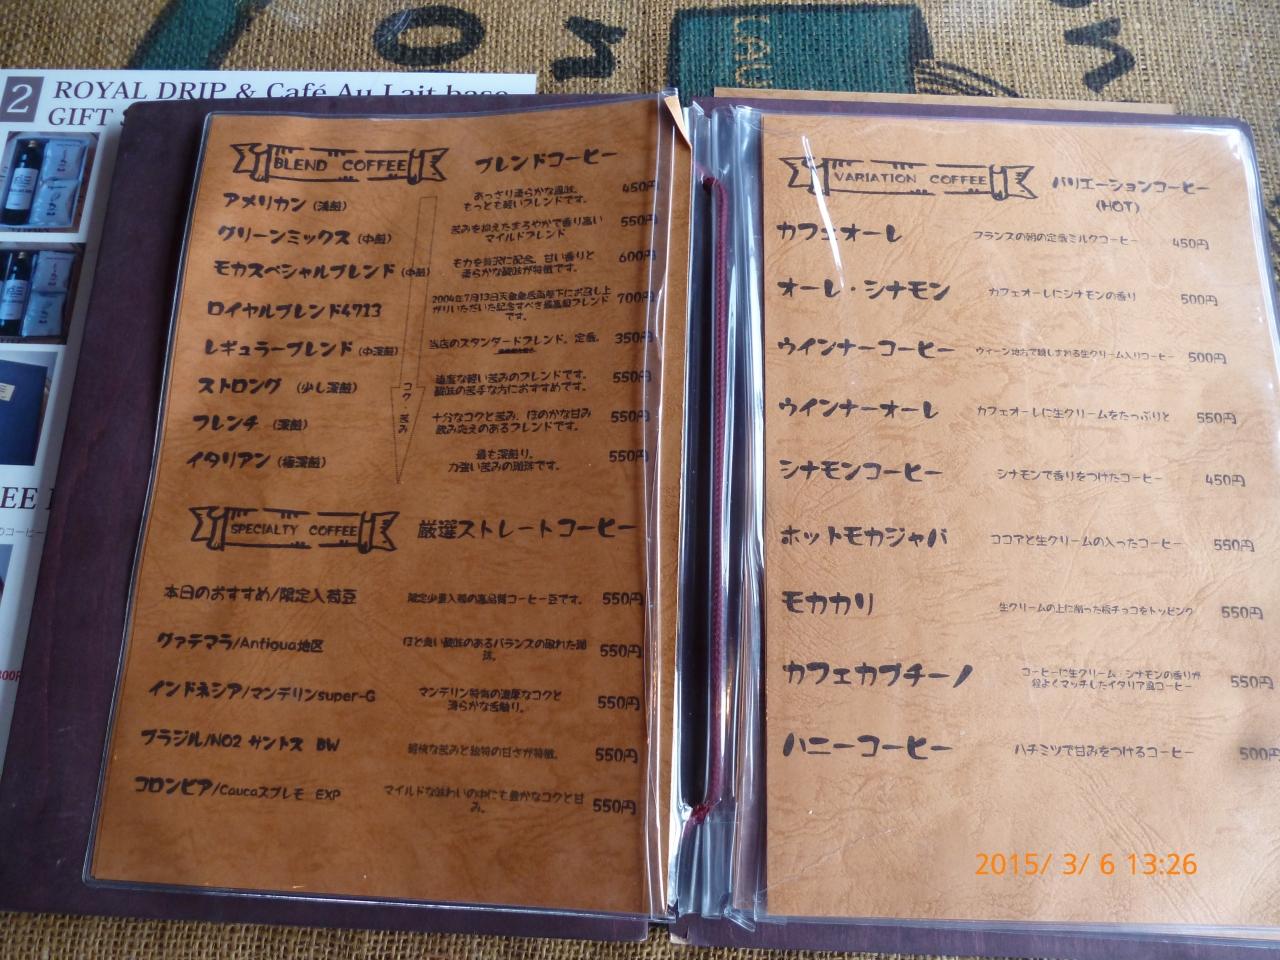 2 ROYAL DRIP & Café Au Lait base
GIFT
BLEND COFFEE ブレンドコーヒー
アメリカン (浅煎) あっさり柔らかな風味。 450円
もっとも軽いブレンドです。
グリーンミックス (中煎) 苦みを抑えたまろやかで香り高い 550円
マイルドブレンド
モカスペシャルブレンド (中煎) モカを贅沢に配合。甘い香りと 600円
柔らかな酸味が特徴です。
ロイヤルブレンド4713 2004年7月13日天皇皇后両陛下にお召し上 700円
がりいただいた記念すべき最高級ブレンド
です。
レギュラーブレンド (中深煎) 当店のスタンダードブレンド。定番。 350円
ストロング (少し深煎) 適度な軽い苦みのブレンドです。 550円
酸味の苦手な方におすすめです。
フレンチ (深煎) 十分なコクと苦み、ほのかな甘み 550円
飲みごたえのあるブレンドです。
イタリアン (極深煎) 最も深煎り。 550円
力強い苦みの珈琲です。
コク 苦み
SPECIALTY COFFEE 厳選ストレートコーヒー
本日のおすすめ/限定入荷豆 限定少量入荷の高品質コーヒー豆です。 550円
グァテマラ/Antigua地区 ほど良い酸味のあるバランスの取れた珈 550円
琲。
インドネシア/マンデリンsuper-G マンデリン特有の濃厚なコクと 550円
滑らかな舌触り。
ブラジル/NO2 サントス BW 軽快な苦みと独特の甘さが特徴。 550円
コロンビア/Caucaスプレモ EXP マイルドな味わいの中にも豊かなコクと甘 550円
み。
VARIATION COFFEE バリエーションコーヒー
(HOT)
カフェオーレ フランスの朝の定番ミルクコーヒー 450円
オーレ・シナモン カフェオーレにシナモンの香り 500円
ウインナーコーヒー ウィーン地方で親しまれる生クリーム入りコーヒー 500円
ウインナーオーレ カフェオーレに生クリームをたっぷりと 550円
シナモンコーヒー シナモンで香りをつけたコーヒー 450円
ホットモカジャバ ココアと生クリームの入ったコーヒー 550円
モカカリ 生クリームの上に削った板チョコをトッピング 550円
カフェカプチーノ コーヒーに生クリーム・シナモンの香りが 550円
程よくマッチしたイタリア風コーヒー
ハニーコーヒー ハチミツで甘みをつけるコーヒー 500円
2015/ 3/ 6 13:26